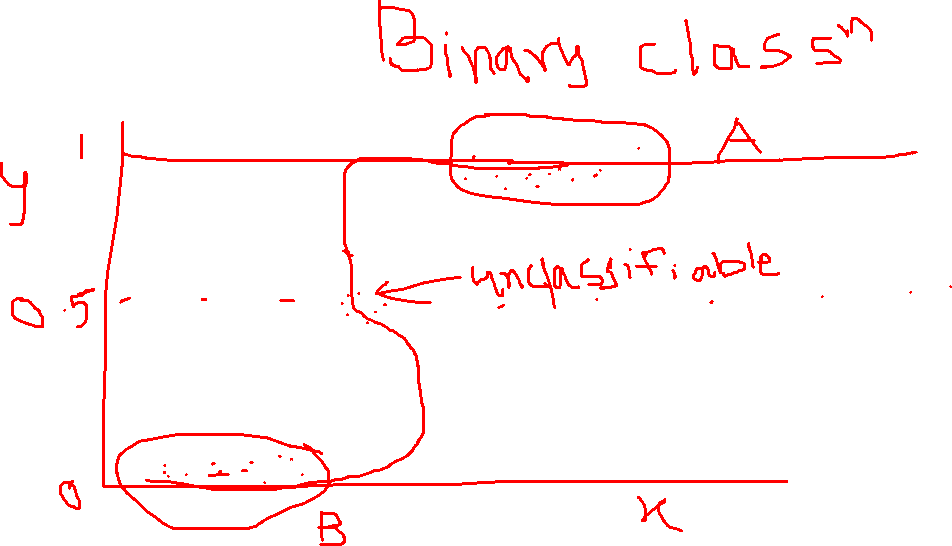 Binary classⁿ
1
A
y
unclassifiable
0.5
0
B
x